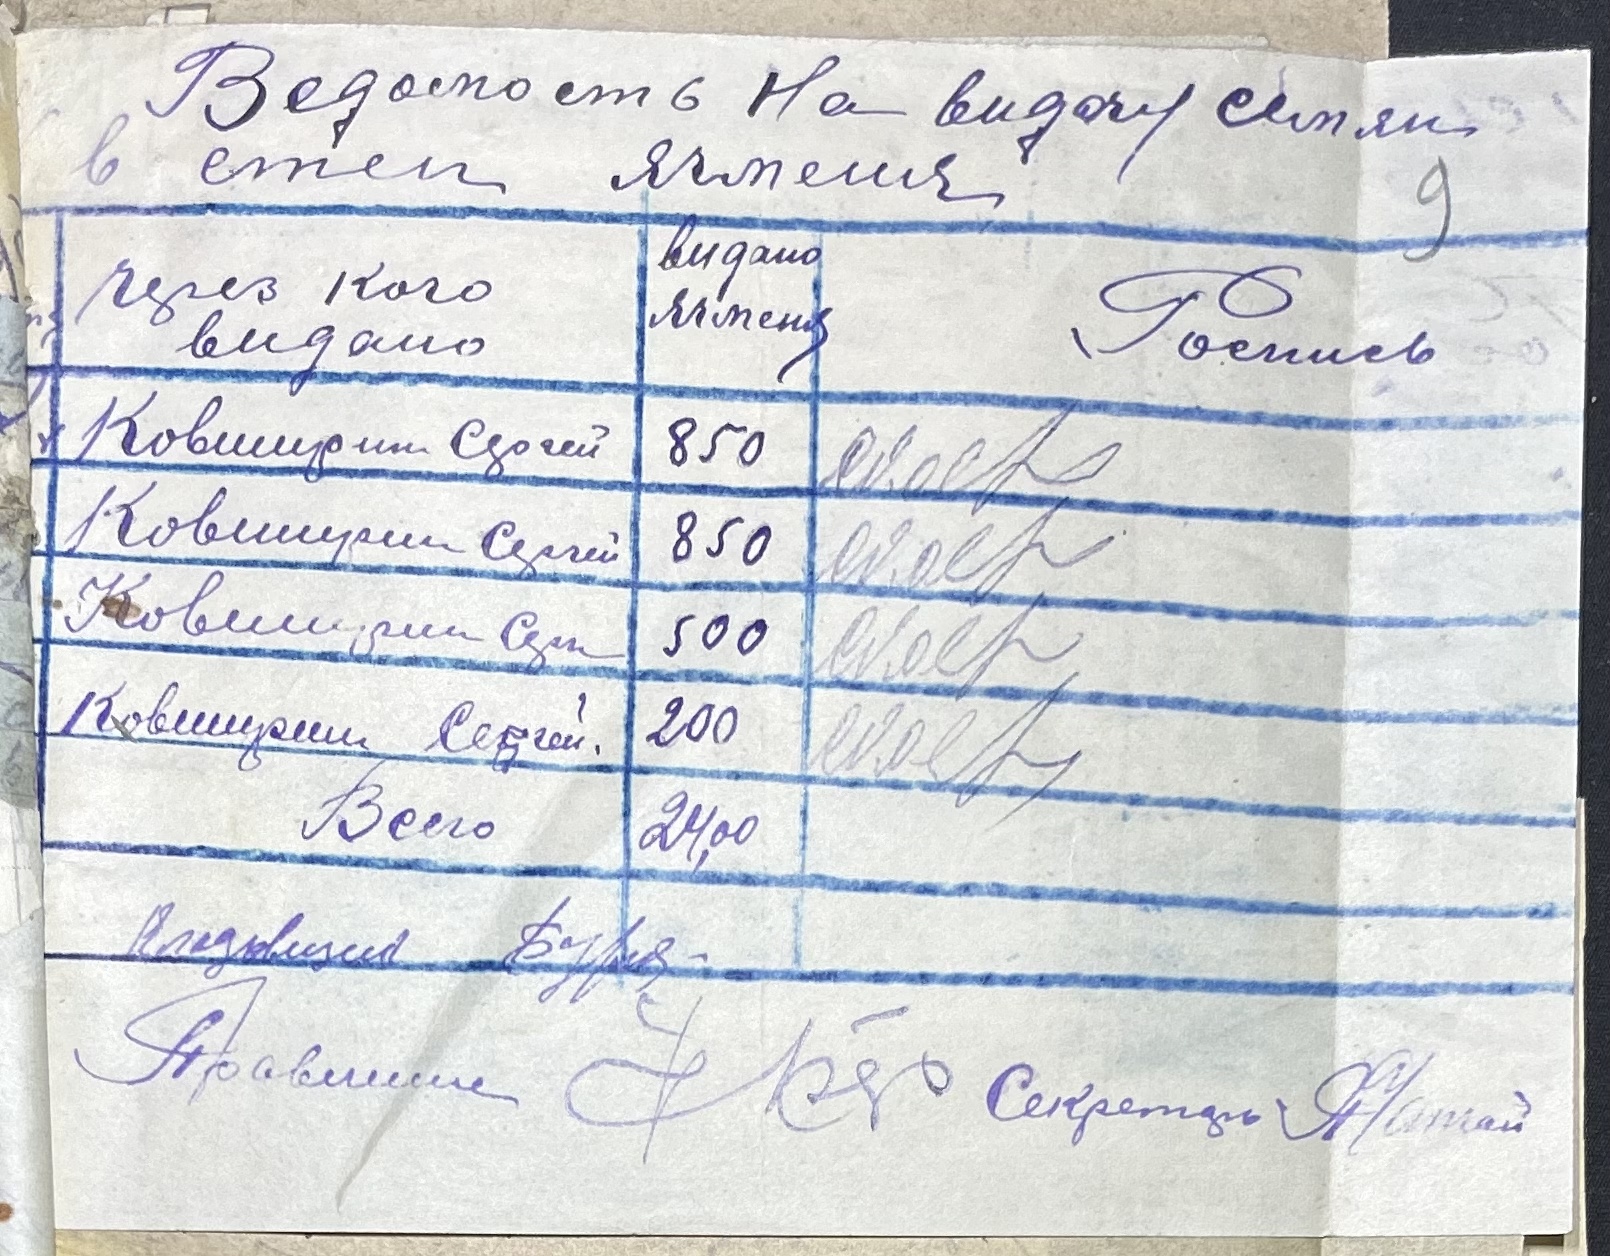 Ведомость на видачу семян
в степ ячменя
9
через кого видано
видано ячменя
Роспись
Ковширин Сергей 850
Ковширин Сергей 850
Ковширин Серг 500
Ковширин Сергей. 200
Всего 24,00
Кладовщик Буря
Правление
Секретарь